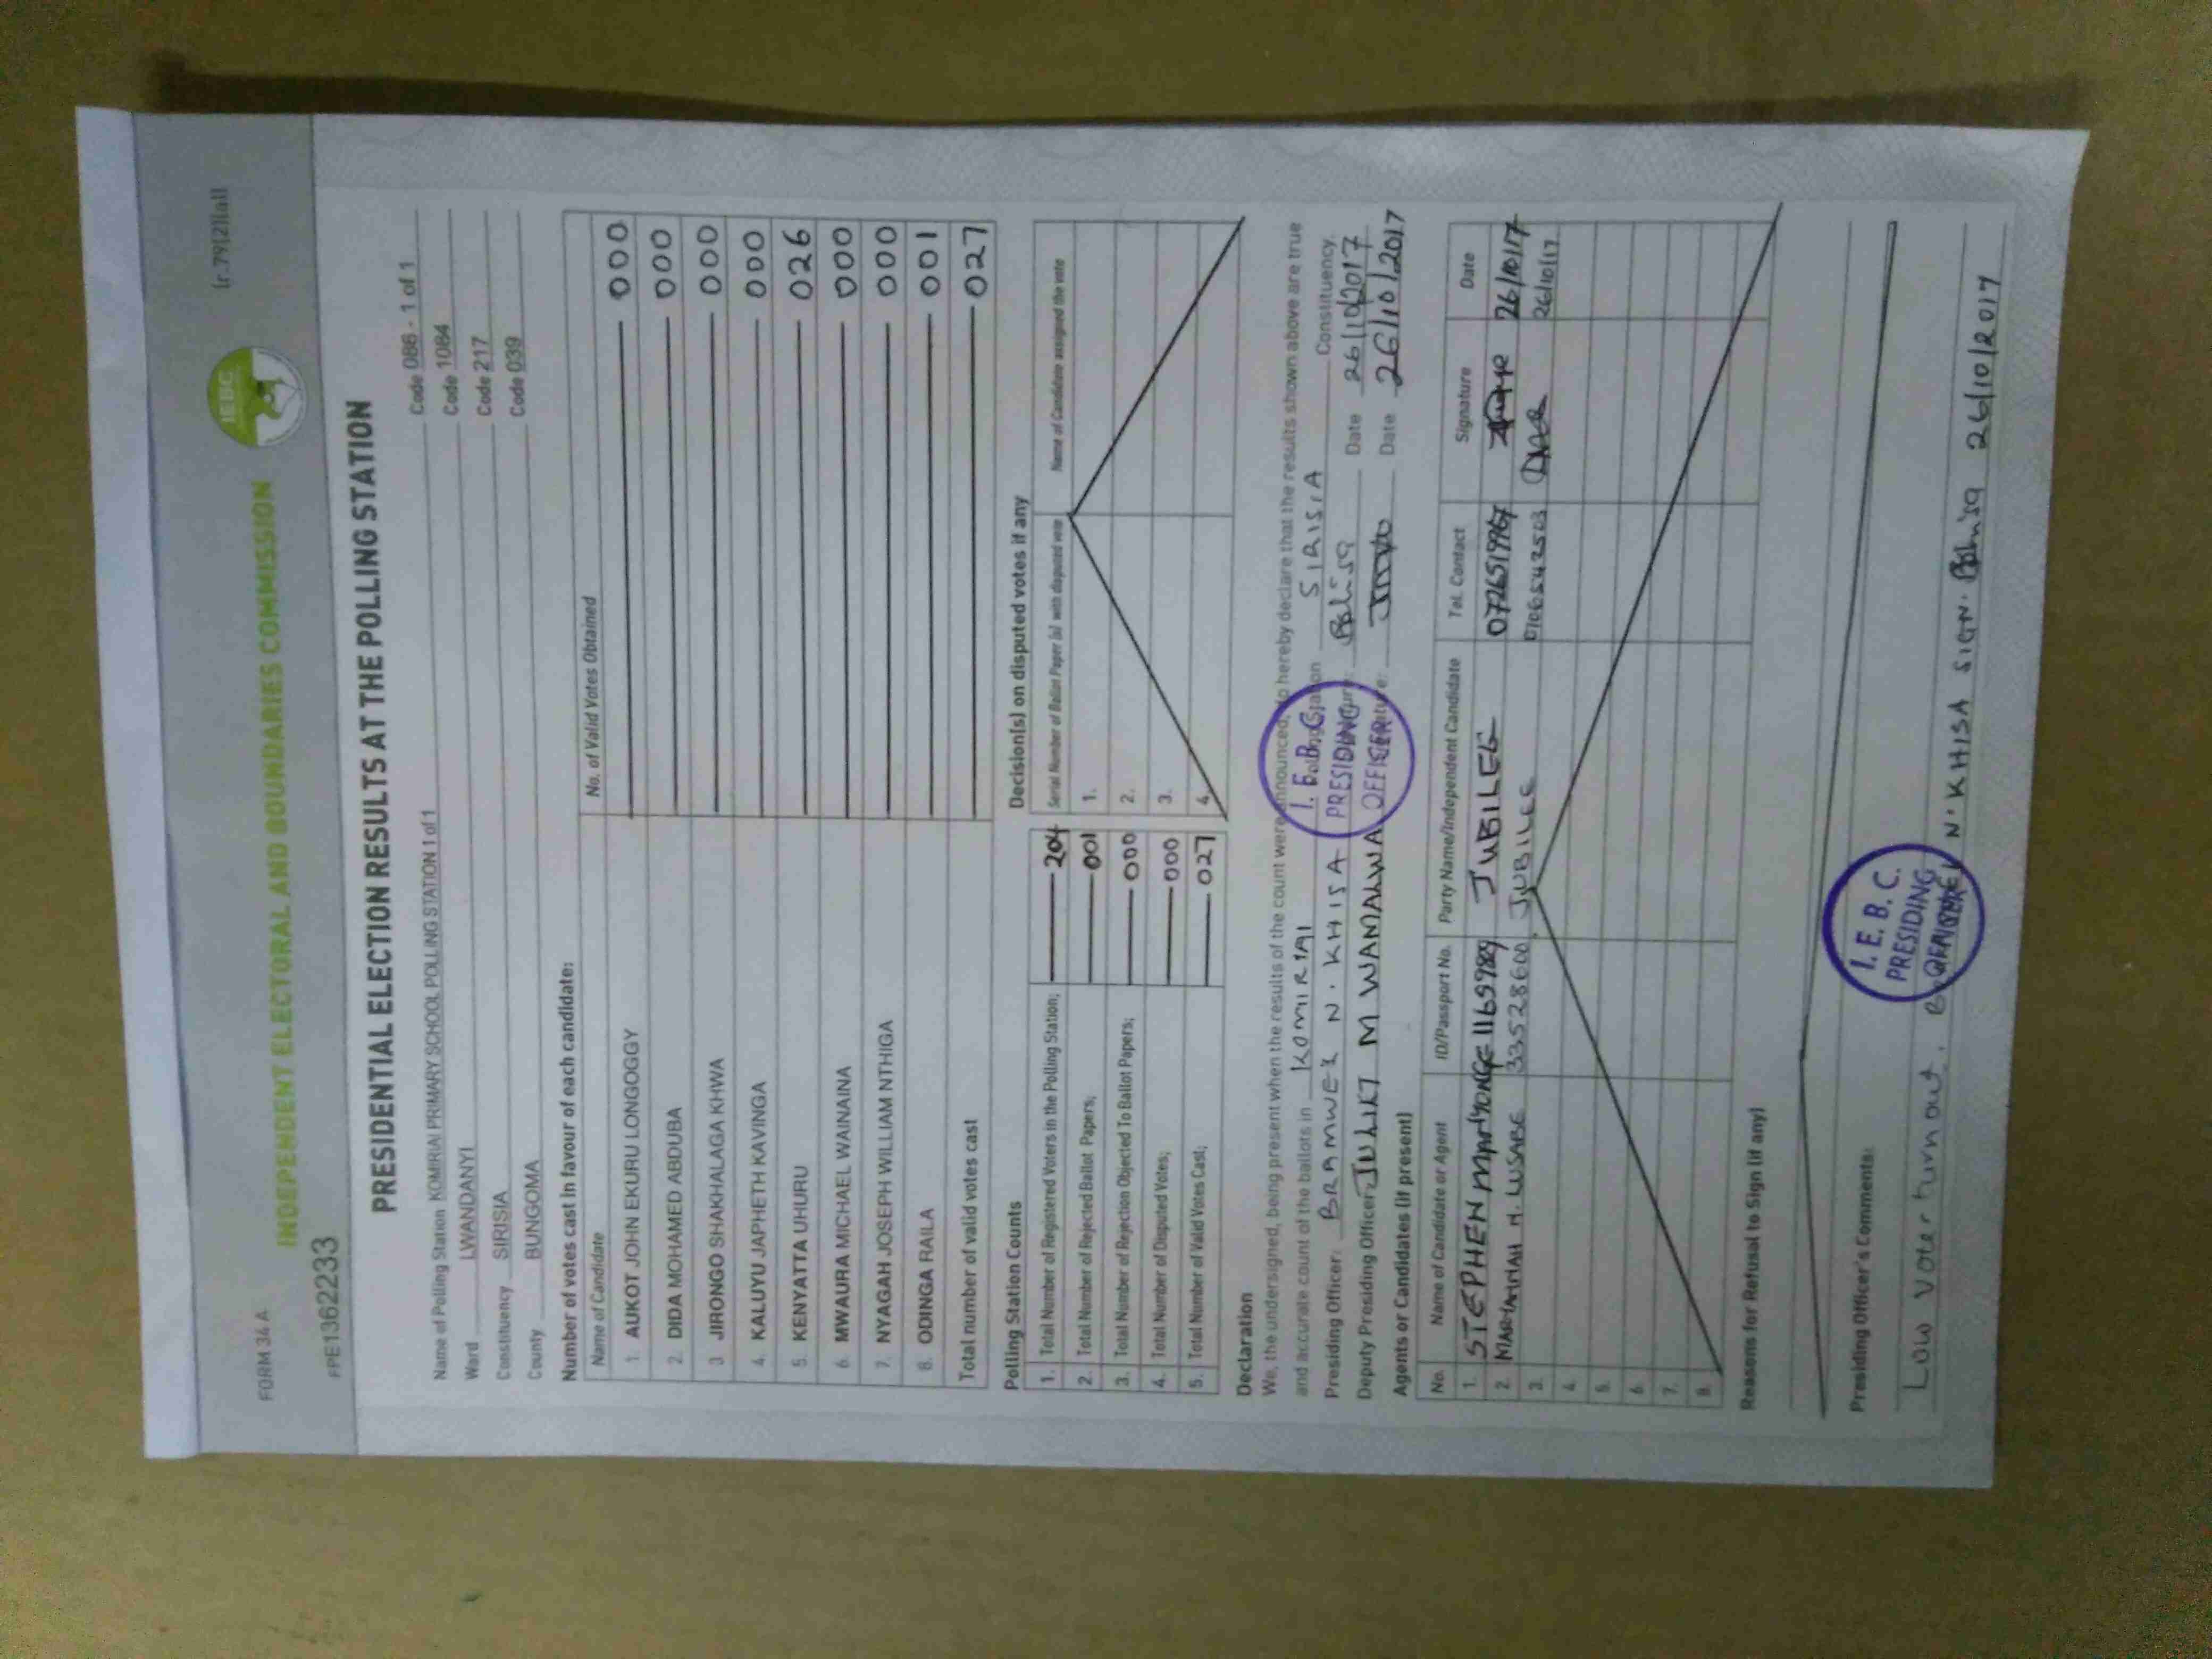 FORM 34 A
(r.79(2)(a))
IEBC
INDEPENDENT ELECTORAL AND BOUNDARIES COMMISSION
FPE13622233
PRESIDENTIAL ELECTION RESULTS AT THE POLLING STATION
Name of Polling Station KOMIRIAI PRIMARY SCHOOL POLLING STATION 1 of 1 Code 086 - 1 of 1
Ward LWANDANYI Code 1084
Constituency SIRISIA Code 217
County BUNGOMA Code 039
Number of votes cast in favour of each candidate:
Name of Candidate No. of Valid Votes Obtained
1. AUKOT JOHN EKURU LONGOGGY 000
2. DIDA MOHAMED ABDUBA 000
3 JIRONGO SHAKHALAGA KHWA 000
4. KALUYU JAPHETH KAVINGA 000
5. KENYATTA UHURU 026
6. MWAURA MICHAEL WAINAINA 000
7. NYAGAH JOSEPH WILLIAM NTHIGA 000
8. ODINGA RAILA 001
Total number of valid votes cast 027
Polling Station Counts
1. Total Number of Registered Voters in the Polling Station; 204
2. Total Number of Rejected Ballot Papers; 001
3. Total Number of Rejection Objected To Ballot Papers; 000
4. Total Number of Disputed Votes; 000
5. Total Number of Valid Votes Cast; 027
Decision(s) on disputed votes if any
Serial Number of Ballot Paper (s) with disputed vote Name of Candidate assigned the vote
1.
2.
3.
4.
Declaration
We, the undersigned, being present when the results of the count were announced, do hereby declare that the results shown above are true
and accurate count of the ballots in KOMIRIAI Polling Station SIRISIA Constituency.
Presiding Officer: BRAMWEL N. KHISA Signature: Date 26/10/2017
Deputy Presiding Officer: JULIET M WAMALWA Signature: Date 26/10/2017
I. E. B. C.
PRESIDING
OFFICER
Agents or Candidates (if present)
No. Name of Candidate or Agent ID/Passport No. Party Name/Independent Candidate Tel. Contact Signature Date
1. STEPHEN 1169789 JUBILEE 26/10/17
2. H. LUSABE 33528600 JUBILEE 26/10/17
3.
4.
5.
6.
7.
8.
Reasons for Refusal to Sign (if any)
Presiding Officer's Comments:
Low voter turnout. N. KHISA SIGN. 26/10/2017
I. E. B. C.
PRESIDING
OFFICER